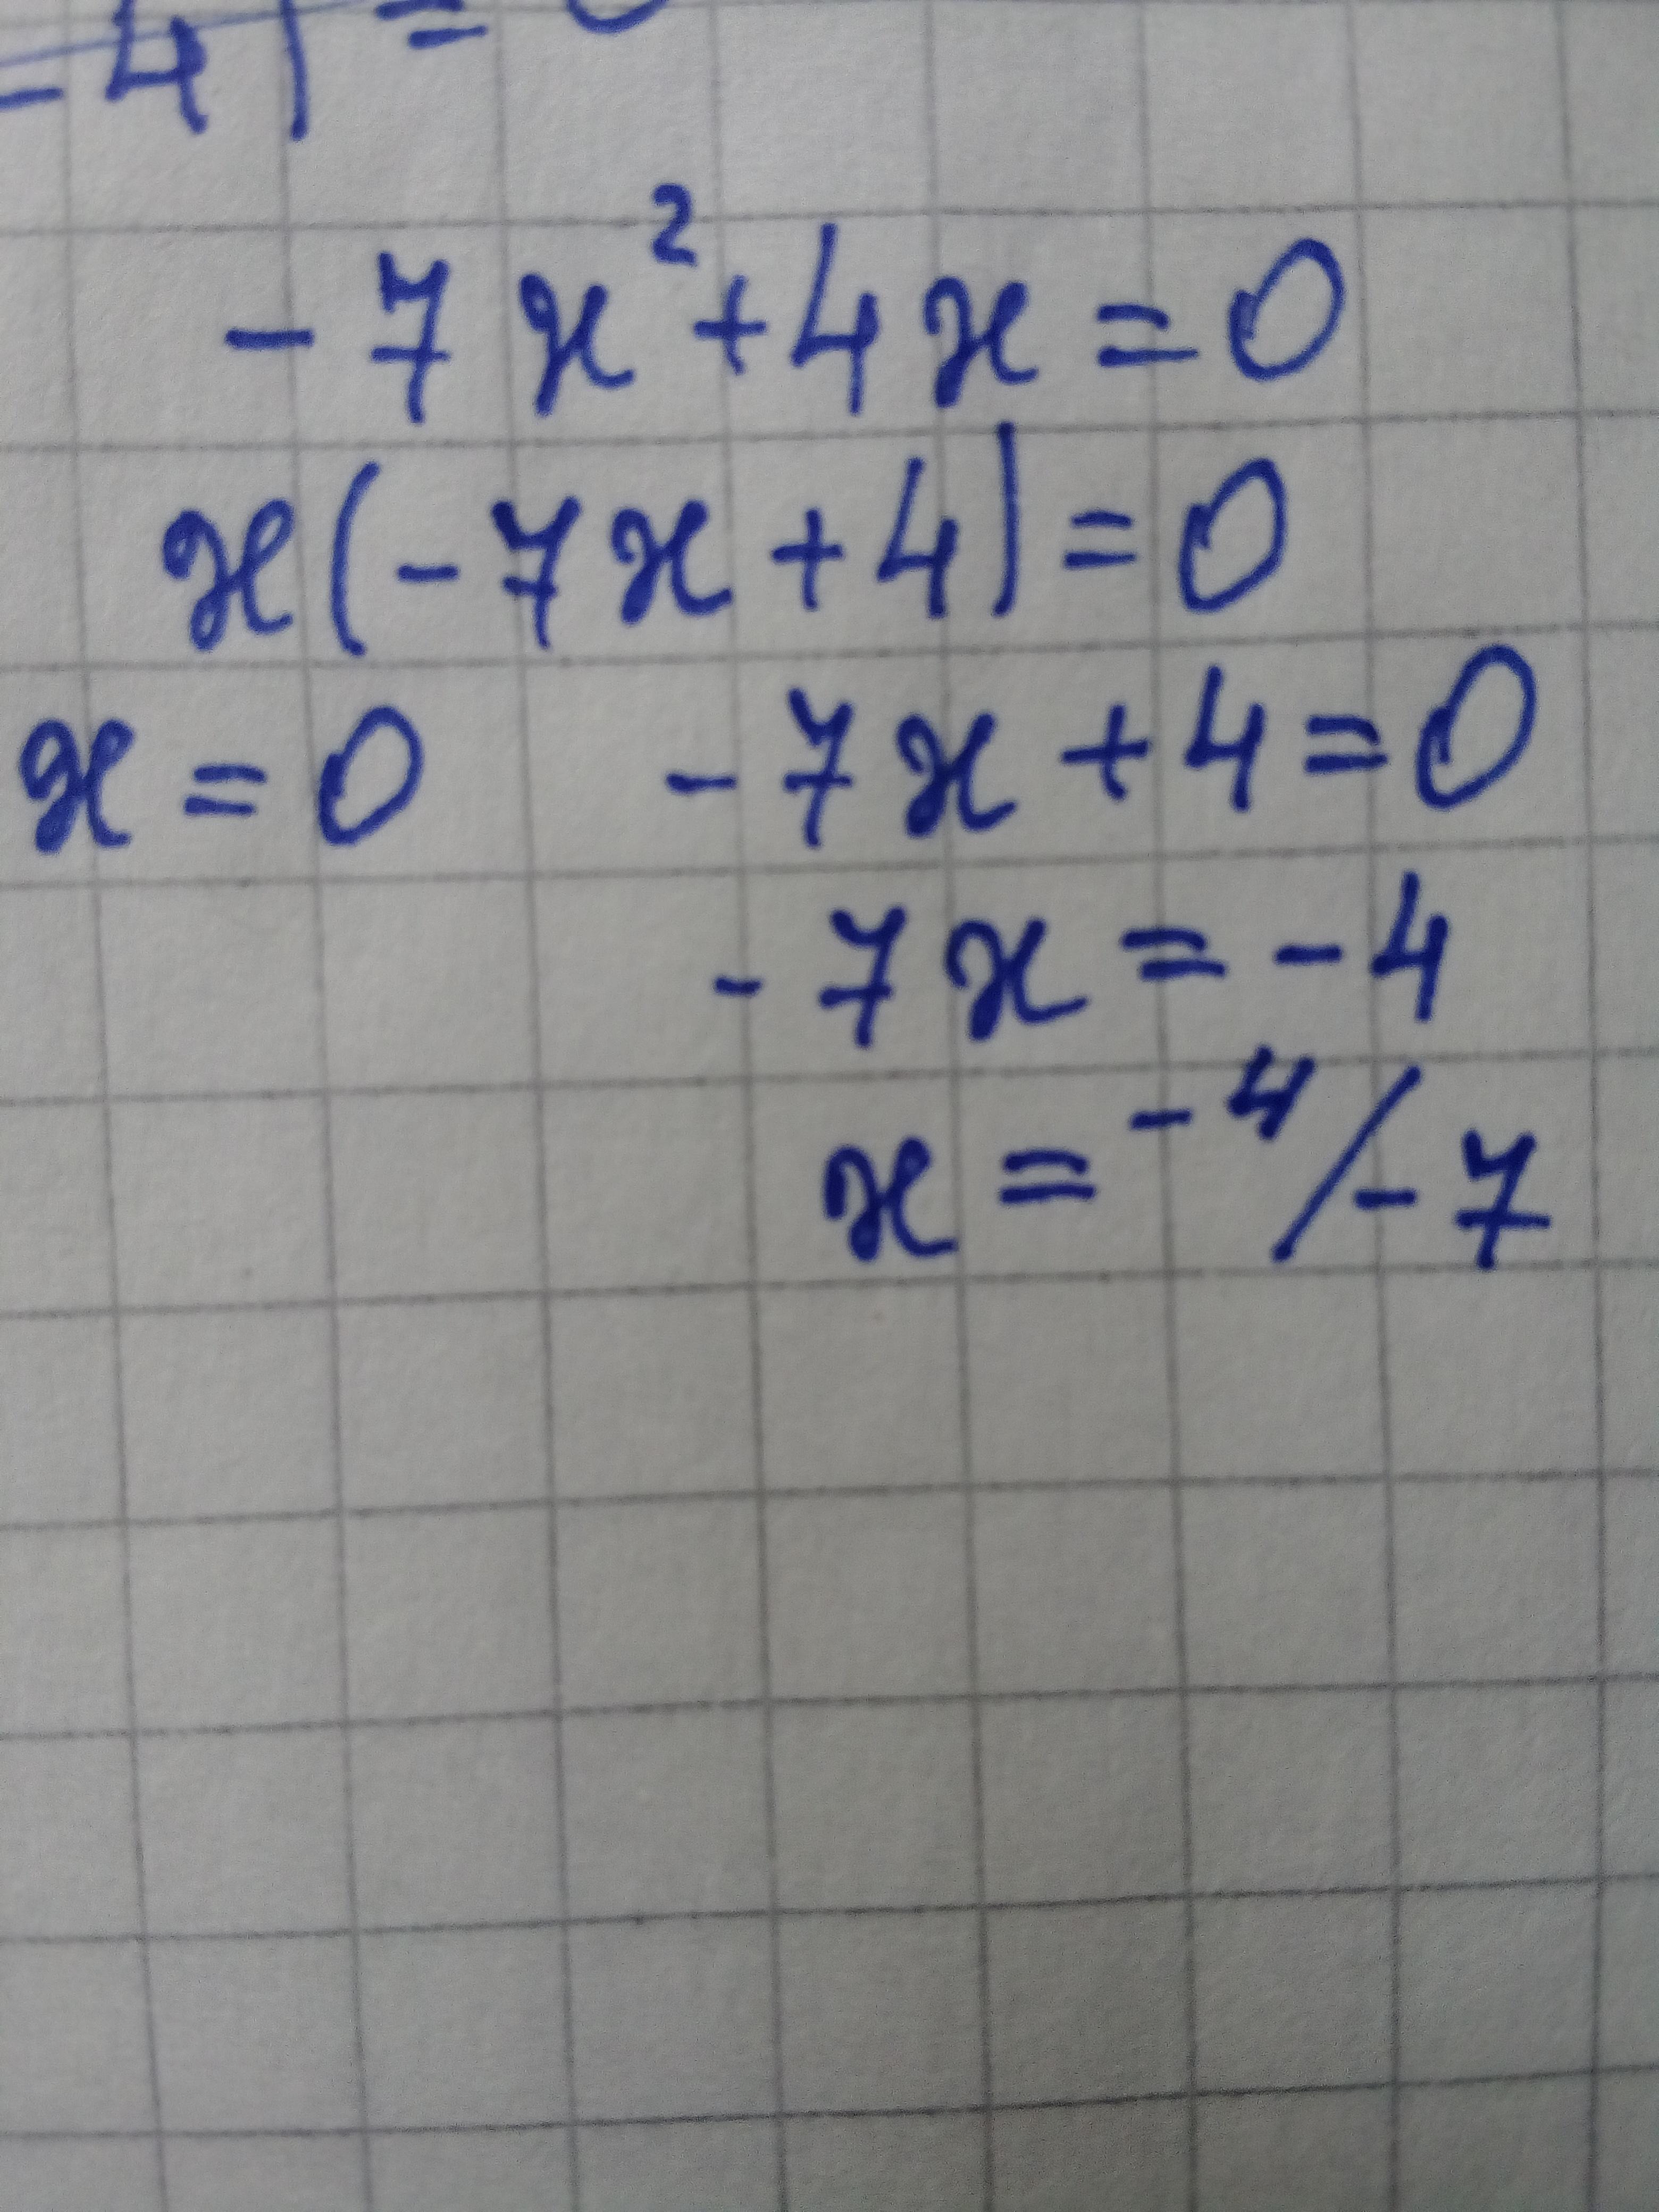 - 4) = 0
- 7x² + 4x = 0
x(-7x + 4) = 0
x = 0 -7x + 4 = 0
-7x = -4
x = -4/-7